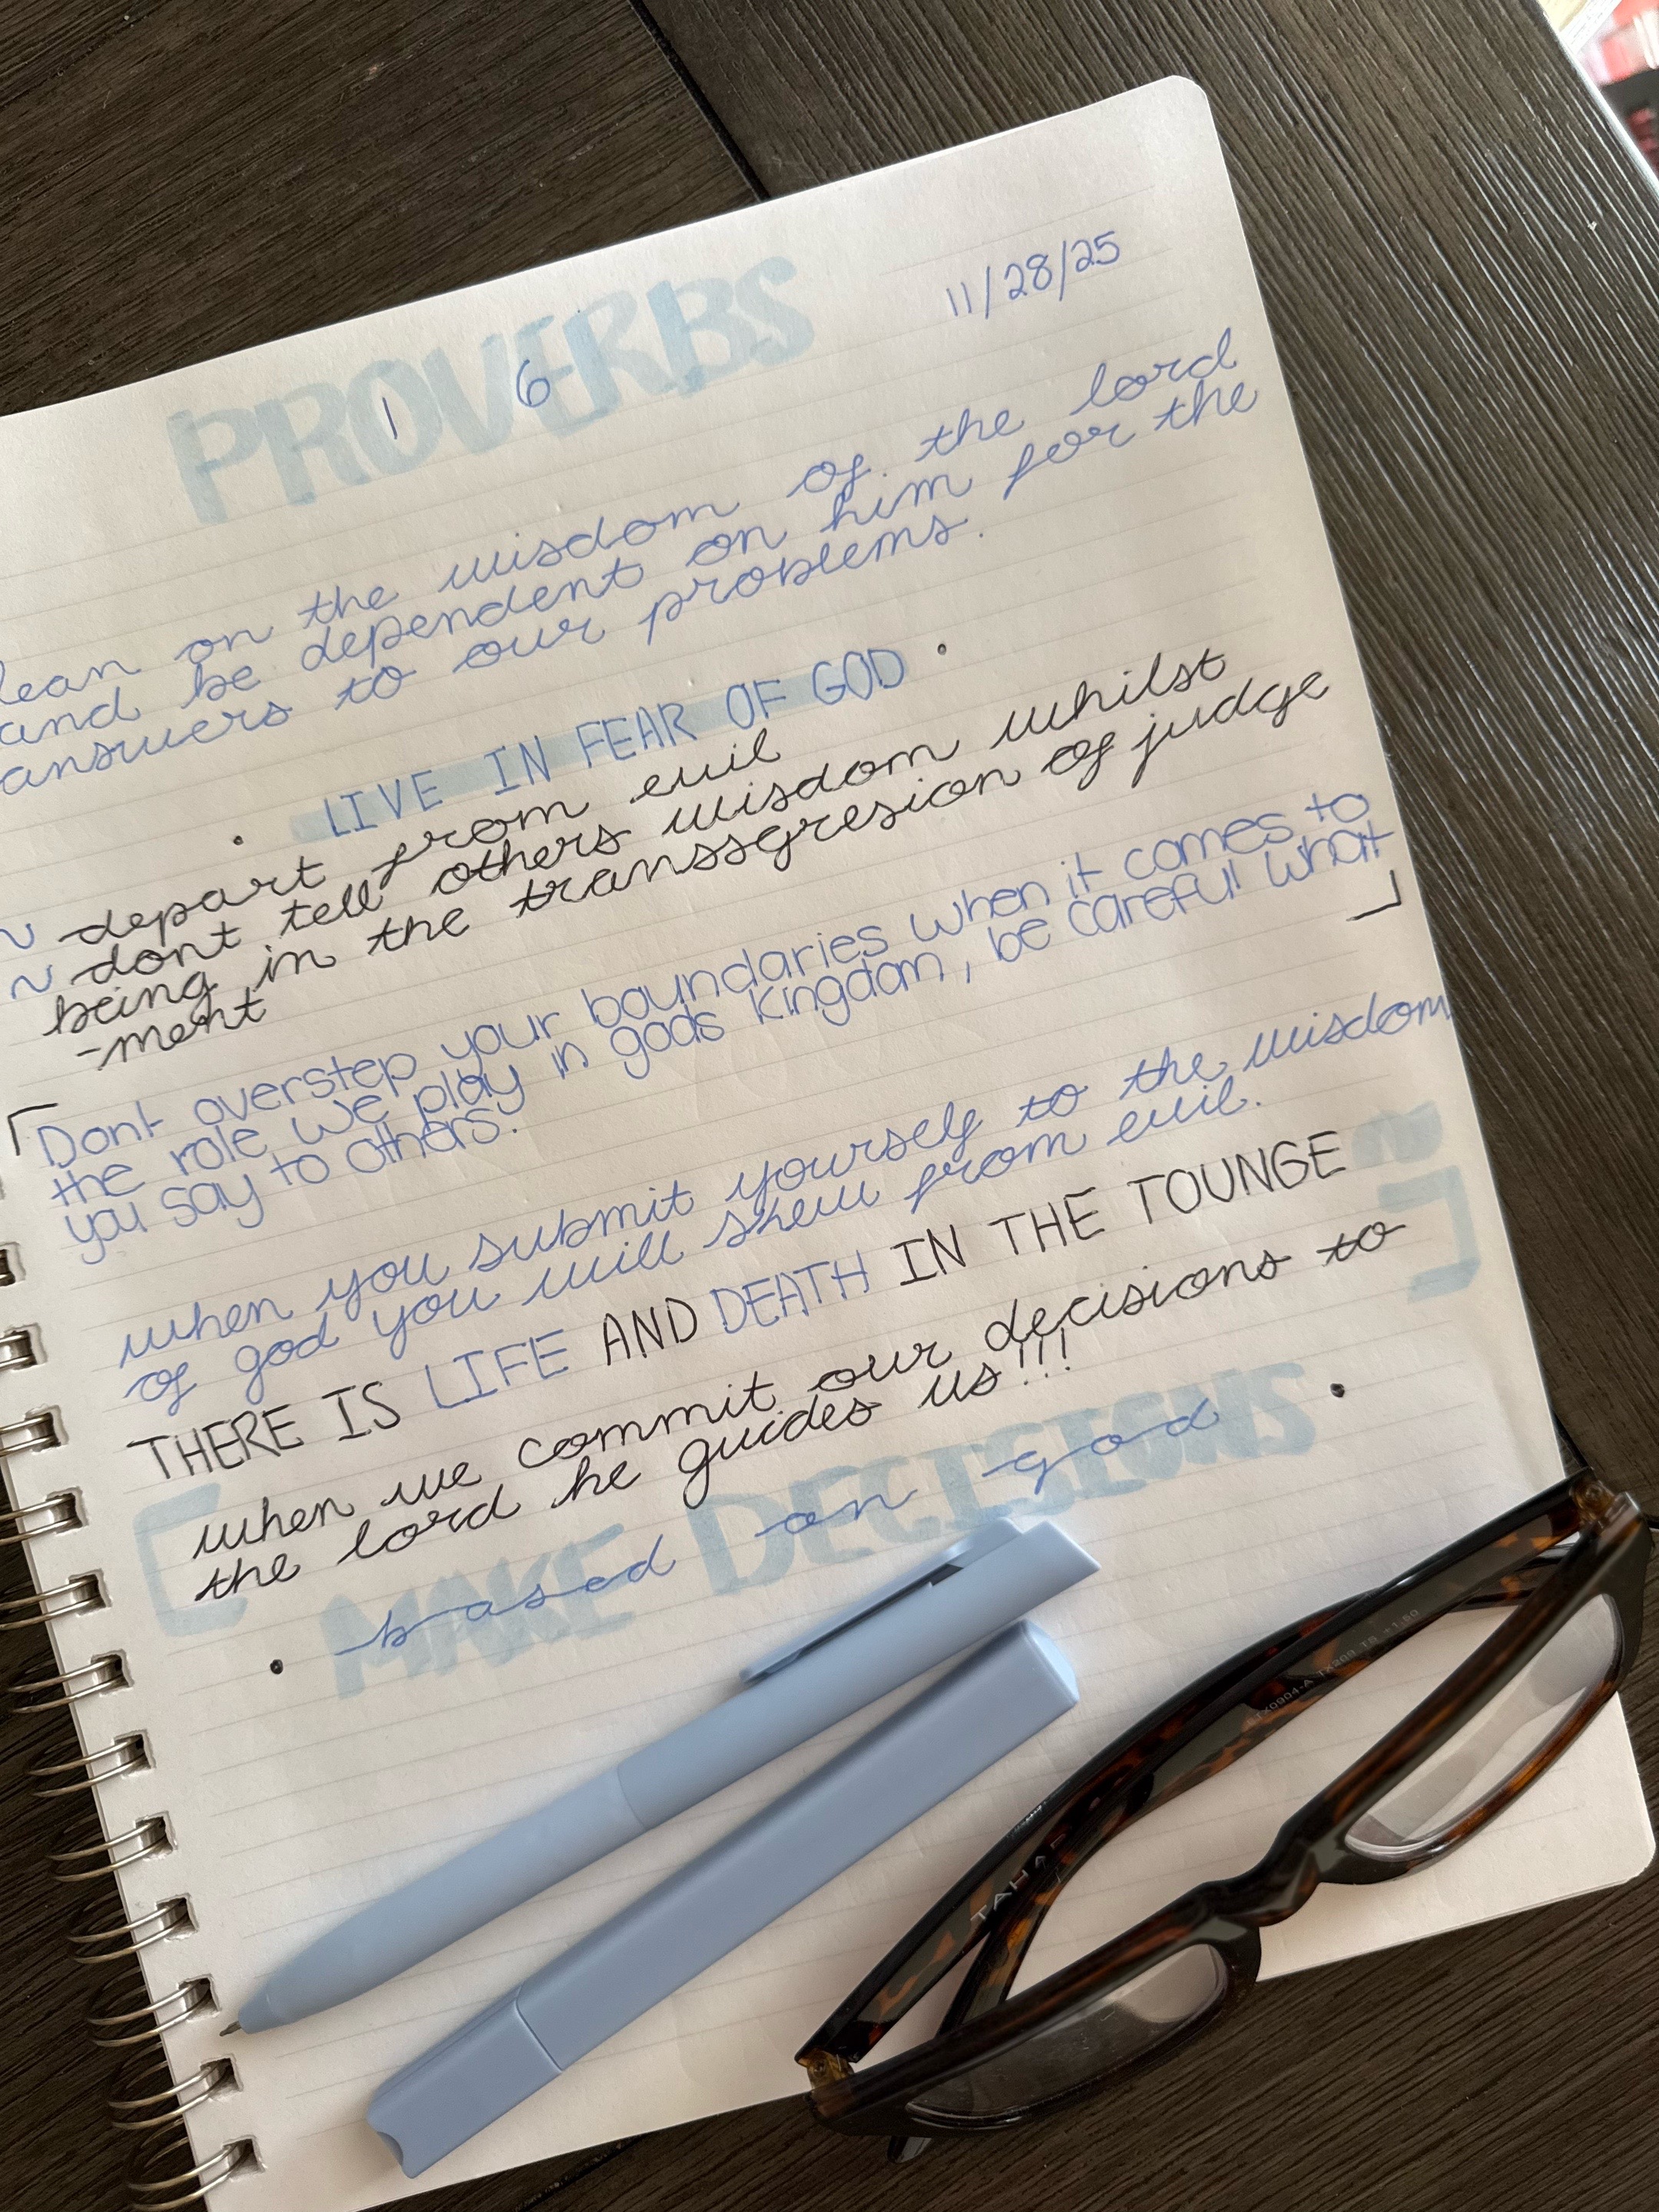 11/28/25
PROVERBS
1 6
lean on the wisdom of the lord
and be dependent on him for the
answers to our problems.
• LIVE IN FEAR OF GOD •
~ depart from evil
~ dont tell others wisdom whilst
being in the transsgresion of judge
-ment
Dont overstep your boundaries when it comes to
the role we play in gods kingdom, be careful what
you say to others.
when you submit yourself to the wisdom
of god you will shew from evil.
THERE IS LIFE AND DEATH IN THE TOUNGE
when we commit our decisions to
the lord he guides us!!!
MAKE DECISIONS
• based on god •
TX209 T8 +1.50